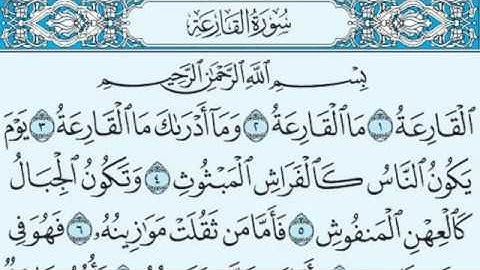 سُورَةُ القَارِعَةِ
بِسْمِ اللَّهِ الرَّحْمَٰنِ الرَّحِيمِ
الْقَارِعَةُ ١ مَا الْقَارِعَةُ ٢ وَمَا أَدْرَىٰكَ مَا الْقَارِعَةُ ٣ يَوْمَ
يَكُونُ النَّاسُ كَالْفَرَاشِ الْمَبْثُوثِ ٤ وَتَكُونُ الْجِبَالُ
كَالْعِهْنِ الْمَنفُوشِ ٥ فَأَمَّا مَن ثَقُلَتْ مَوَازِينُهُ ٦ فَهُوَ فِي